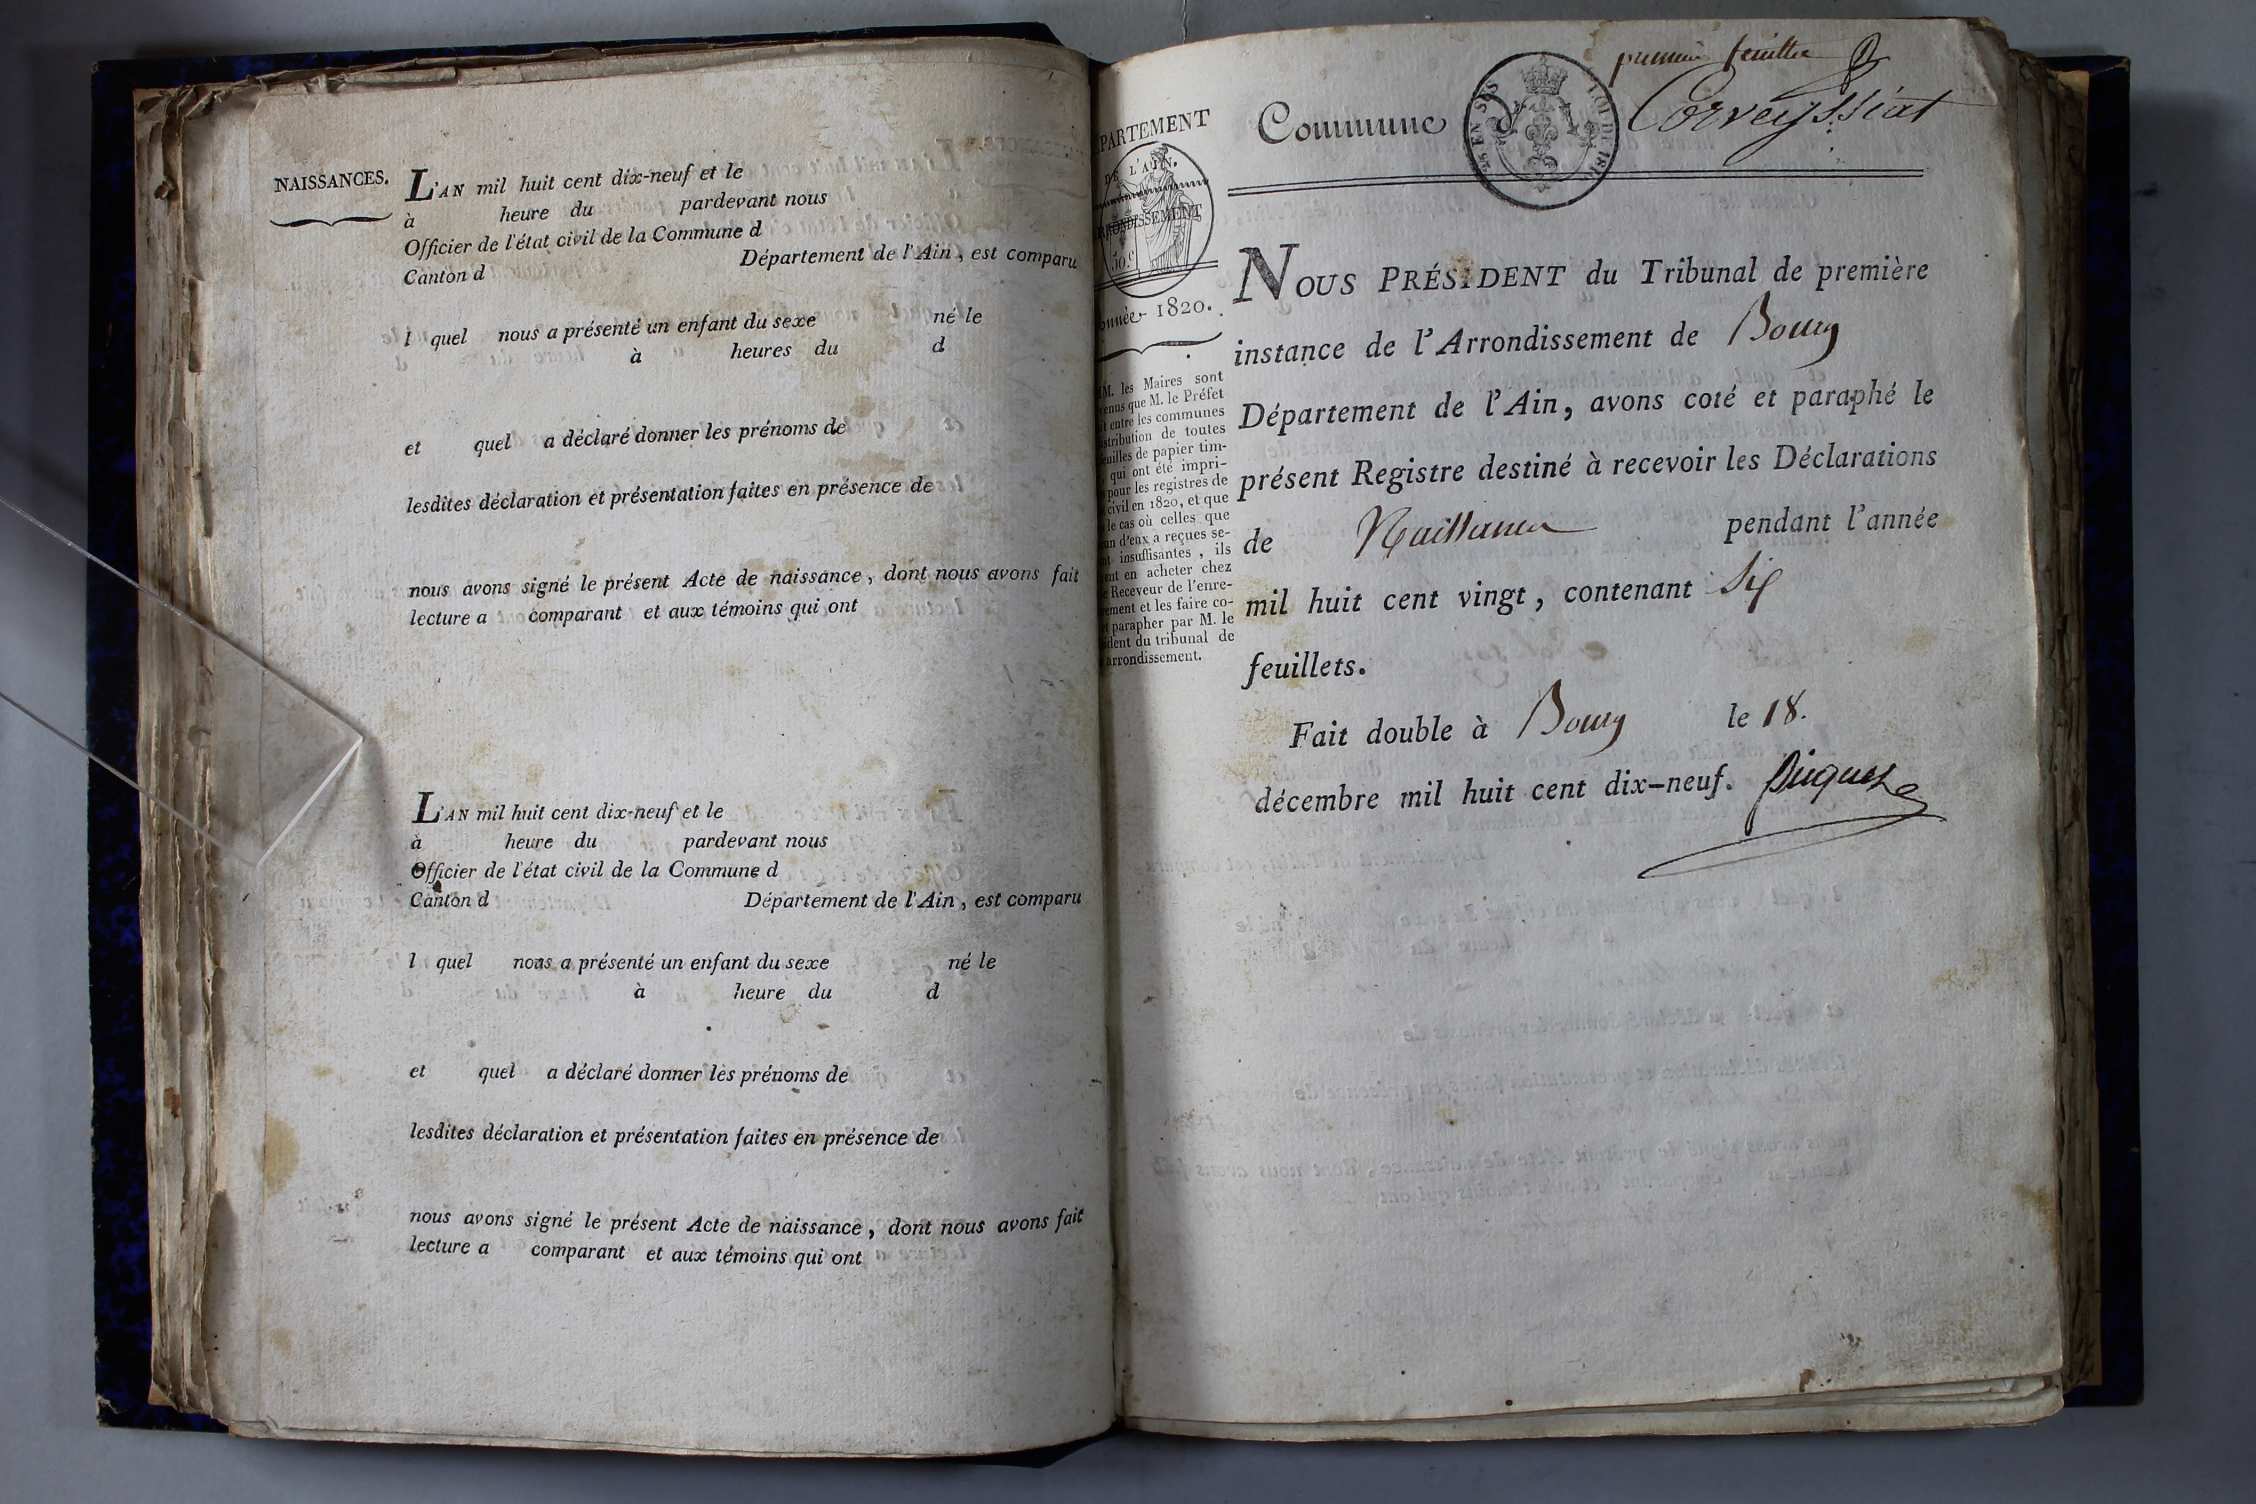 NAISSANCES.
L'AN mil huit cent dix-neuf et le
à heure du pardevant nous
Officier de l'état civil de la Commune d
Canton d Département de l'Ain, est comparu
l quel nous a présenté un enfant du sexe né le
à heures du d
et quel a déclaré donner les prénoms de
lesdites déclaration et présentation faites en présence de
nous avons signé le présent Acte de naissance, dont nous avons fait
lecture a comparant et aux témoins qui ont
L'AN mil huit cent dix-neuf et le
à heure du pardevant nous
Officier de l'état civil de la Commune d
Canton d Département de l'Ain, est comparu
l quel nous a présenté un enfant du sexe né le
à heure du d
et quel a déclaré donner les prénoms de
lesdites déclaration et présentation faites en présence de
nous avons signé le présent Acte de naissance, dont nous avons fait
lecture a comparant et aux témoins qui ont
PARTEMENT
DE L'AIN.
ARRONDISSEMENT
50 c
1820.
M. les Maires sont
enus que M. le Préfet
it entre les communes
stribution de toutes
euilles de papier tim-
qui ont été impri-
pour les registres de
civil en 1820, et que
le cas où celles que
un d'eux a reçues se-
nt insuffisantes, ils
ent en acheter chez
e Receveur de l'enre-
ement et les faire co-
et parapher par M. le
ident du tribunal de
arrondissement.
premier feuillet
Commune d Corveyssiat
NOUS PRÉSIDENT du Tribunal de première
instance de l'Arrondissement de Bourg
Département de l'Ain, avons coté et paraphé le
présent Registre destiné à recevoir les Déclarations
de Naissance pendant l'année
mil huit cent vingt, contenant Six
feuillets.
Fait double à Bourg le 18.
décembre mil huit cent dix-neuf.